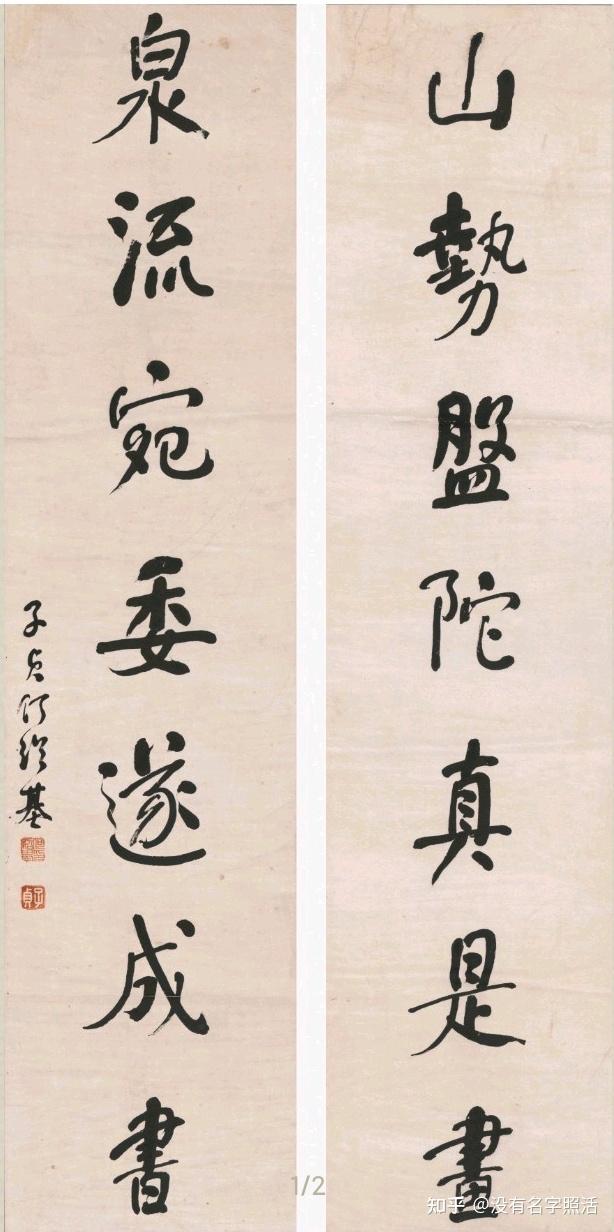 山勢盤陀真是畫
泉流宛委遂成書
子貞何紹基
子貞
1/2
知乎 @没有名字照活